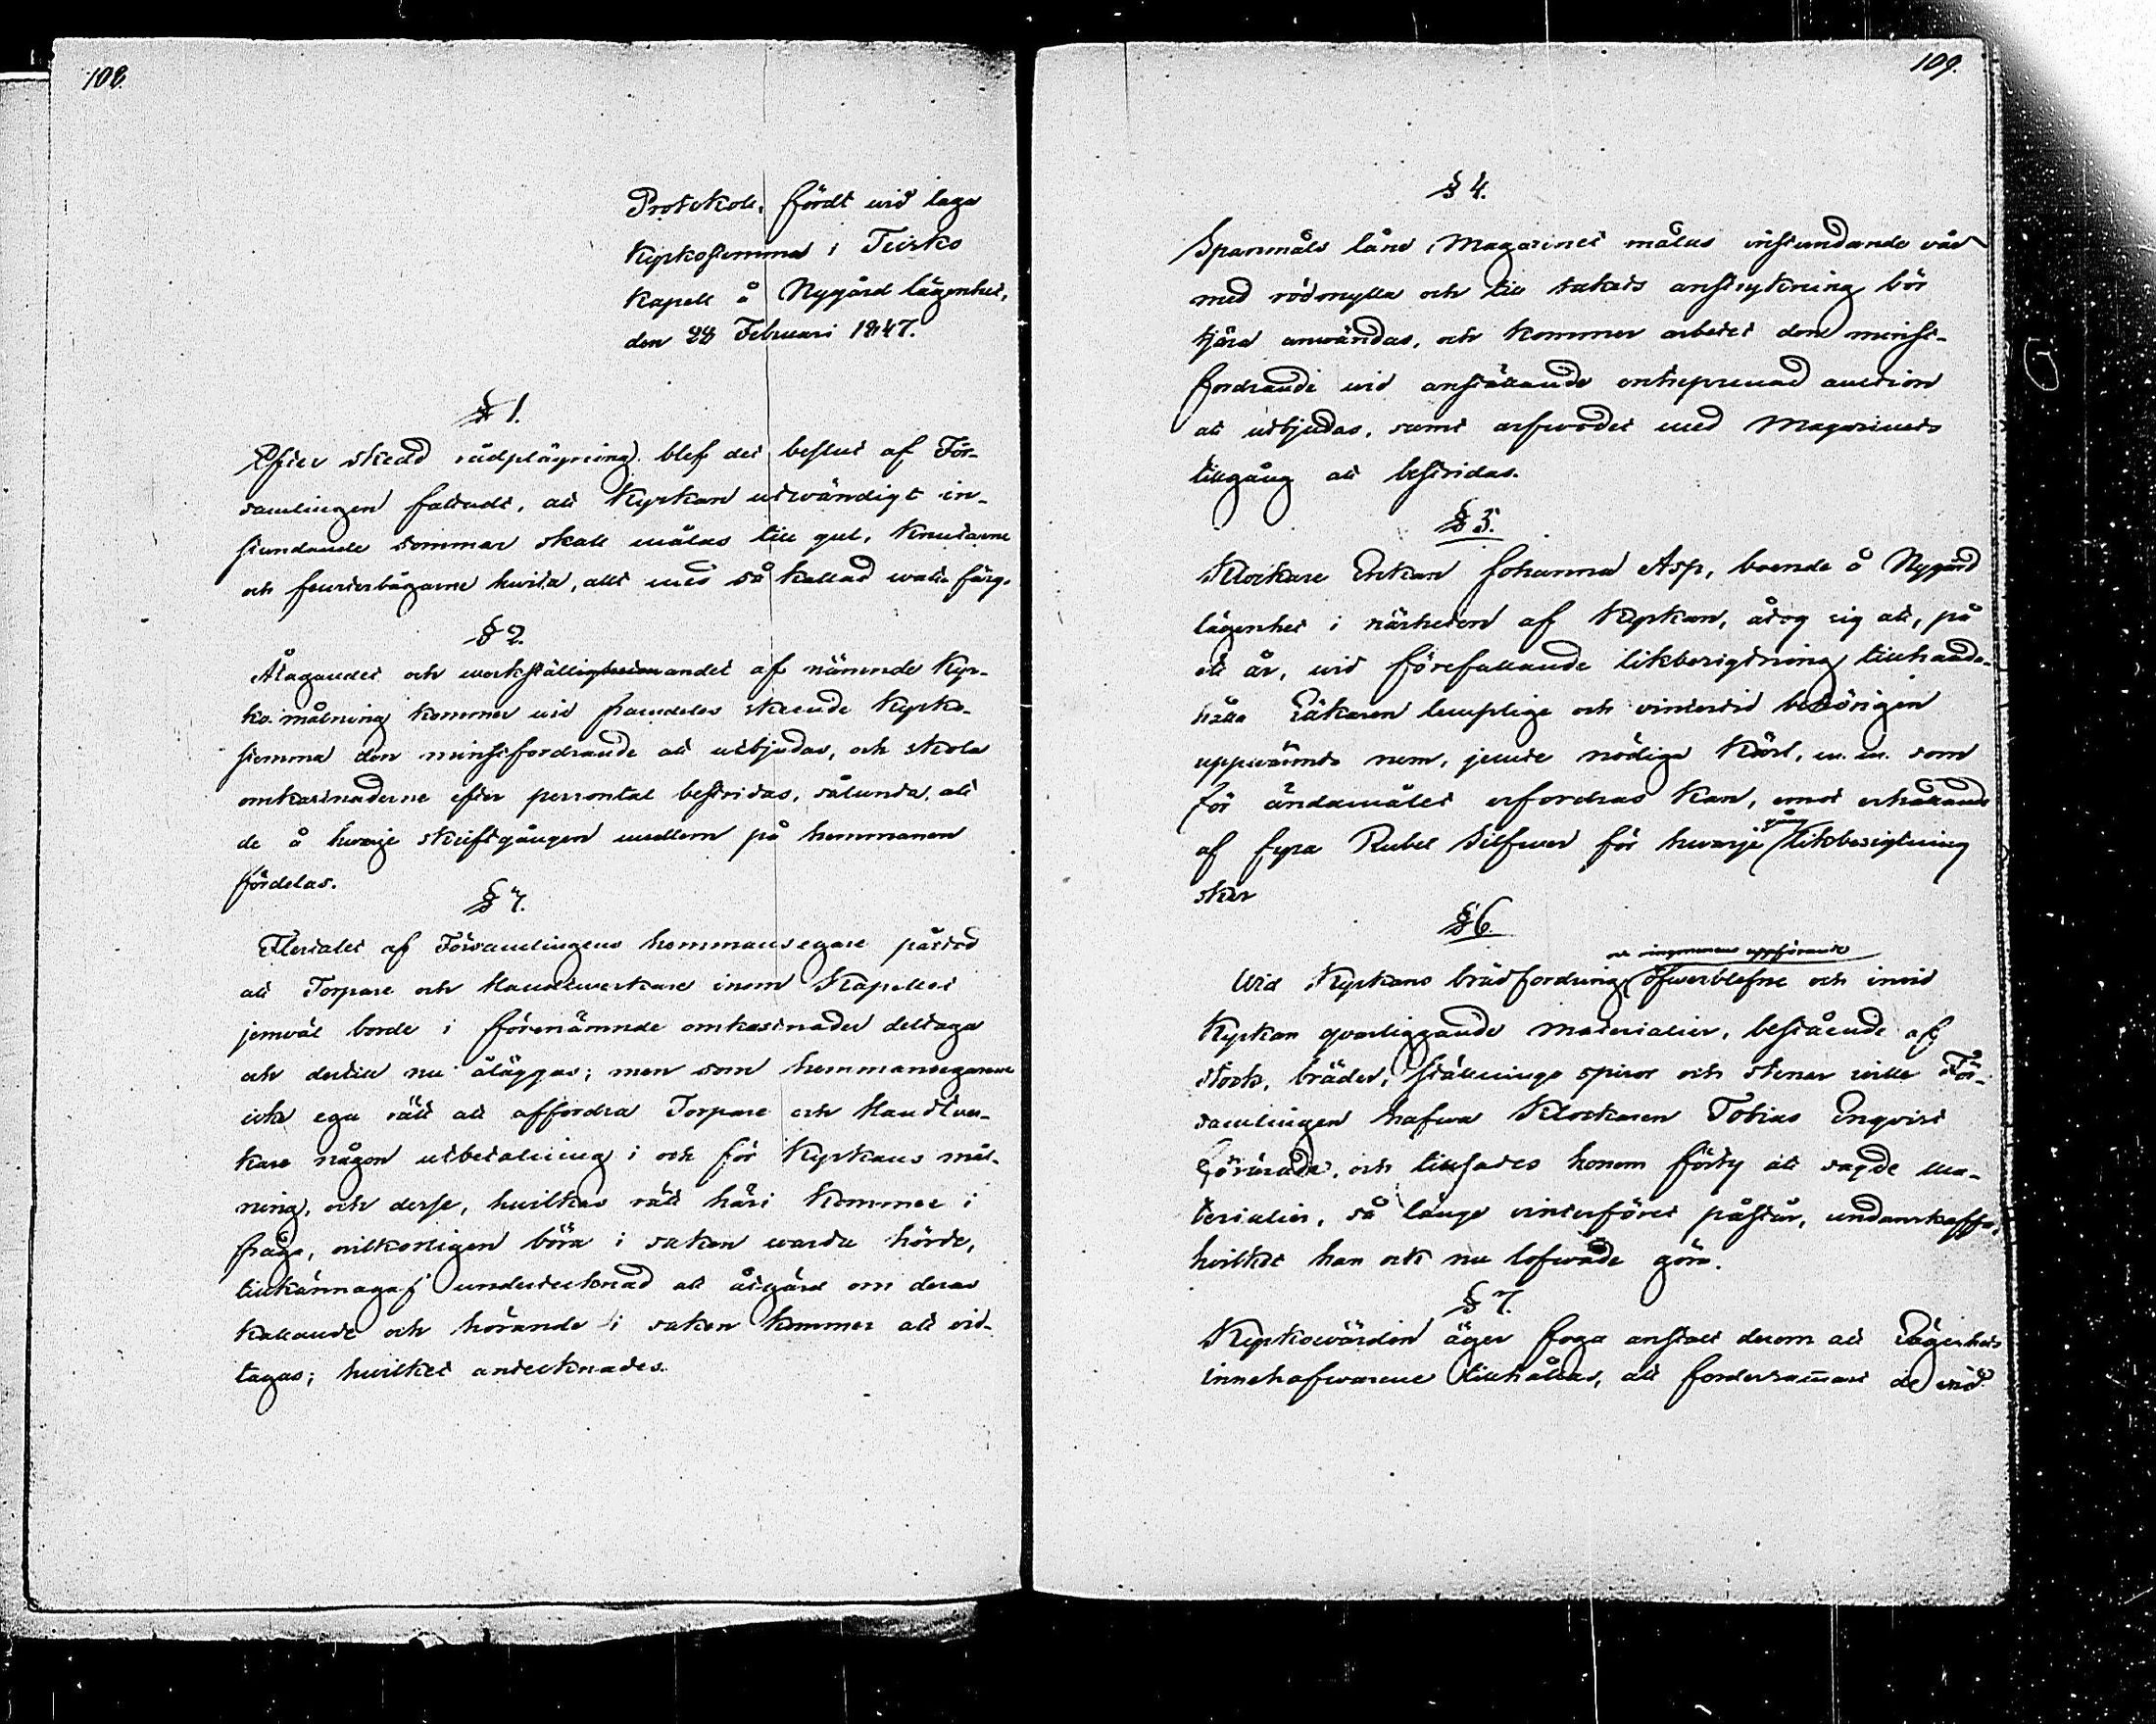 108.
Protokoll, fördt wid laga
Kyrkostemma i Teisko
Kapell å Nygård lägenhet,
den 28 Februari 1847.
§ 1.
Efter skedd rådplägning blef det beslut af För-
samlingen fattadt, att Kyrkan utwändigt in-
stundande sommar skall målas till gul, Knutarne
och fensterbågarne hwita, allt med så kallad watten färg.
§ 2.
Åtagandet och werkställandet af nämnde Kyr-
ko målning kommer wid framdeles skeende Kyrko-
stemma den minstfordrande att utbjudas, och skola
omkostnaderne efter persontal bestridas, sålunda, att
de å hwarje skriftgången emellan på hemmanen
fördelas.
§ 3.
Flertalet af Församlingens hemmansegare påstod
att Torpare och Handtwerkare inom Kapellet
jemwäl borde i förenämnde omkostnader deltaga
och dertill nu åläggas; men som hemmansegarene
icke ega rätt att affordra Torpare och Handtwer-
kare någon utbetalning i och för Kyrkans mål-
ning, och desse, hwilkas rätt häri kommer i
fråga, ovilkorligen böra i saken warda hörde,
tillkännagaf undertecknad att åtgärd om deras
kallande och hörande i saken kommer att vid-
tagas; hwilket antecknades.
109.
§ 4.
Spanmåls låne Magasinet målas instundande vår
med rödmylla och till takets anstrykning bör
tjära användas, och kommer arbetet den minst-
fordrande wid anställande entreprenad auction
att utbjudas, samt arfwodet med Magasinets
tillgång att bestridas.
§ 5.
Klockare Enkan Johanna Asp, boende å Nygård
lägenhet i närheten af Kyrkan, åtog sig att, på
ett år, wid förefallande likbesigtning tillhanda-
hålla Läkaren lämplige och vintertid behörigen
uppwärmde rum, jemte nödiga Kärl, m. m. som
för ändamålet erfordras kan, emot erhållande
af fyra Rubel Silfwer för hwarje gång likbesigtning
sker
§ 6.
Wid Kyrkans brädfordring och ringmurens uppförande öfwerblefne och inwid
Kyrkan qwarliggande materialier, bestående af
stock, bräder, ställnings spiror och stenar wille För-
samlingen hafwa Klockaren Tobias Enqvist
förärade, och tillsades honom förty att sagde ma-
terialier, så länge vinterföret påstår, undanskaffa,
hwilket han ock nu lofwade göra.
§ 7.
Kyrkowärden äger foga anstalt derom att Lägenhets
innehafwarene tillhållas, att fordersammast de wid